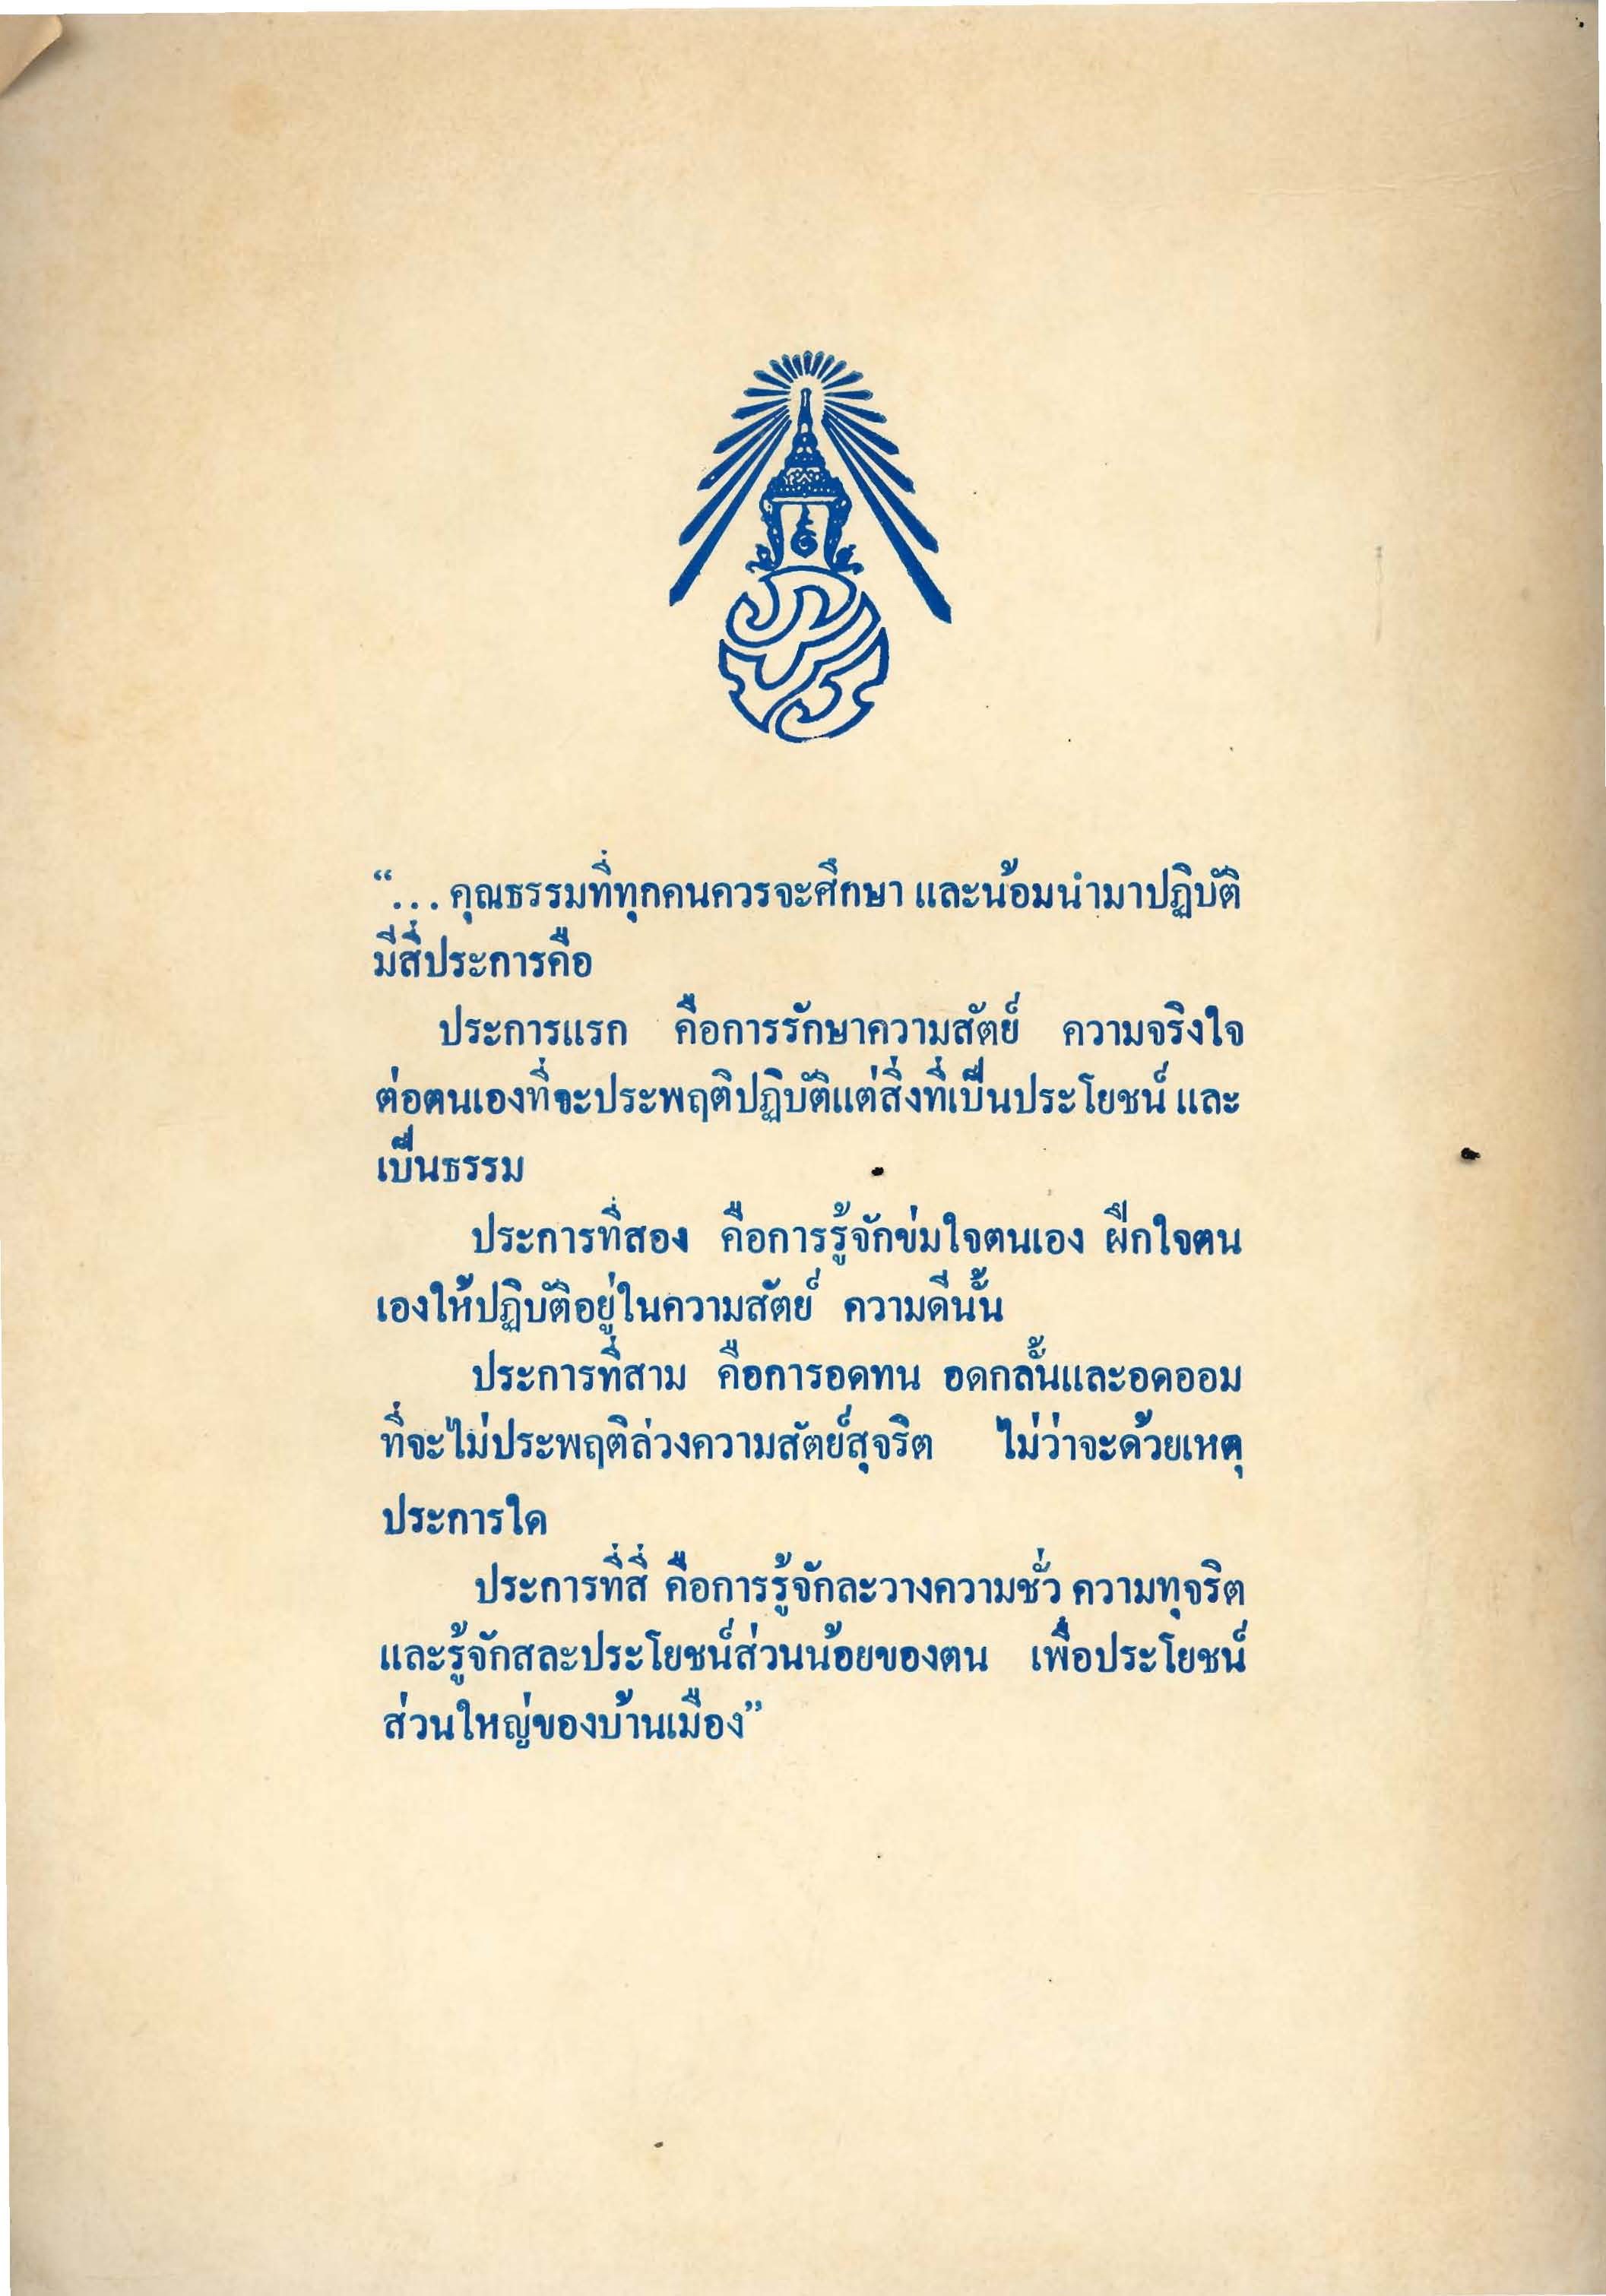 “... คุณธรรมที่ทุกคนควรจะศึกษา และน้อมนำมาปฏิบัติ
มีสี่ประการคือ
ประการแรก คือการรักษาความสัตย์ ความจริงใจ
ต่อตนเองที่จะประพฤติปฏิบัติแต่สิ่งที่เป็นประโยชน์ และ
เป็นธรรม
ประการที่สอง คือการรู้จักข่มใจตนเอง ฝึกใจตน
เองให้ปฏิบัติอยู่ในความสัตย์ ความดีนั้น
ประการที่สาม คือการอดทน อดกลั้นและอดออม
ที่จะไม่ประพฤติล่วงความสัตย์สุจริต ไม่ว่าจะด้วยเหตุ
ประการใด
ประการที่สี่ คือการรู้จักละวางความชั่ว ความทุจริต
และรู้จักสละประโยชน์ส่วนน้อยของตน เพื่อประโยชน์
ส่วนใหญ่ของบ้านเมือง”